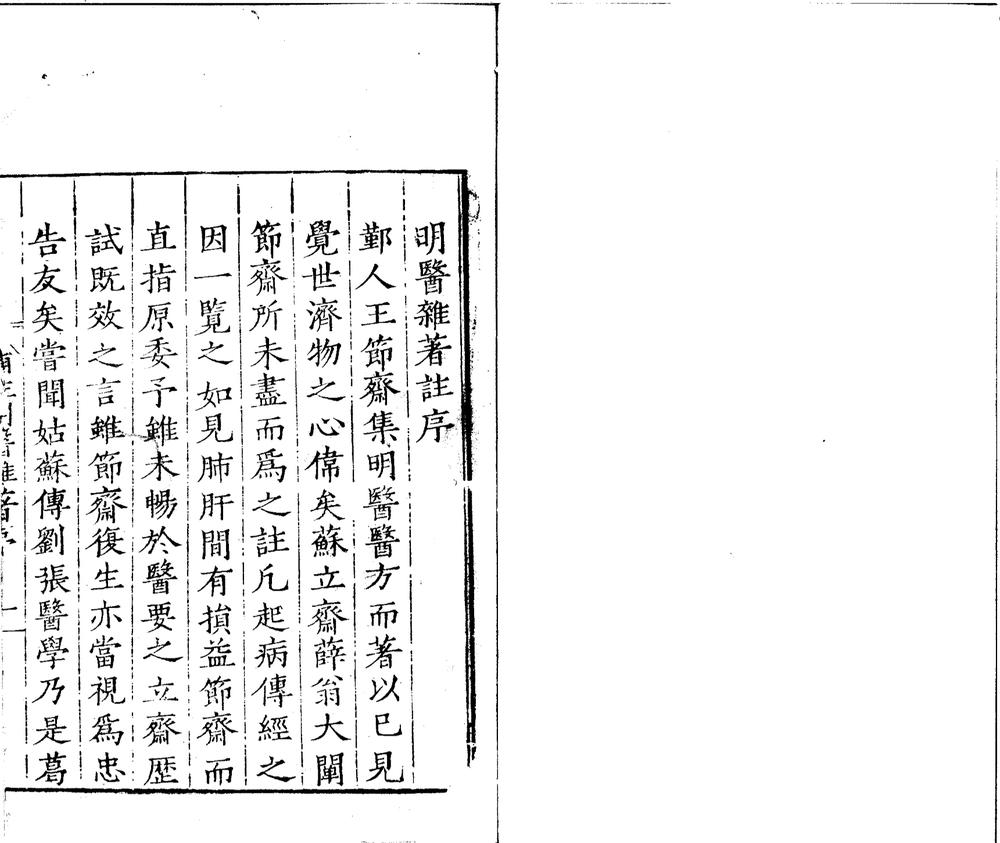 明醫雜著註序
鄞人王節齋集明醫醫方而著以已見
覺世濟物之心偉矣蘇立齋薛翁大闡
節齋所未盡而爲之註凢起病傳經之
因一覽之如見肺肝間有損益節齋而
直指原委予雖未暢於醫要之立齋歴
試既效之言雖節齋復生亦當視爲忠
告友矣嘗聞姑蘇傳劉張醫學乃是葛